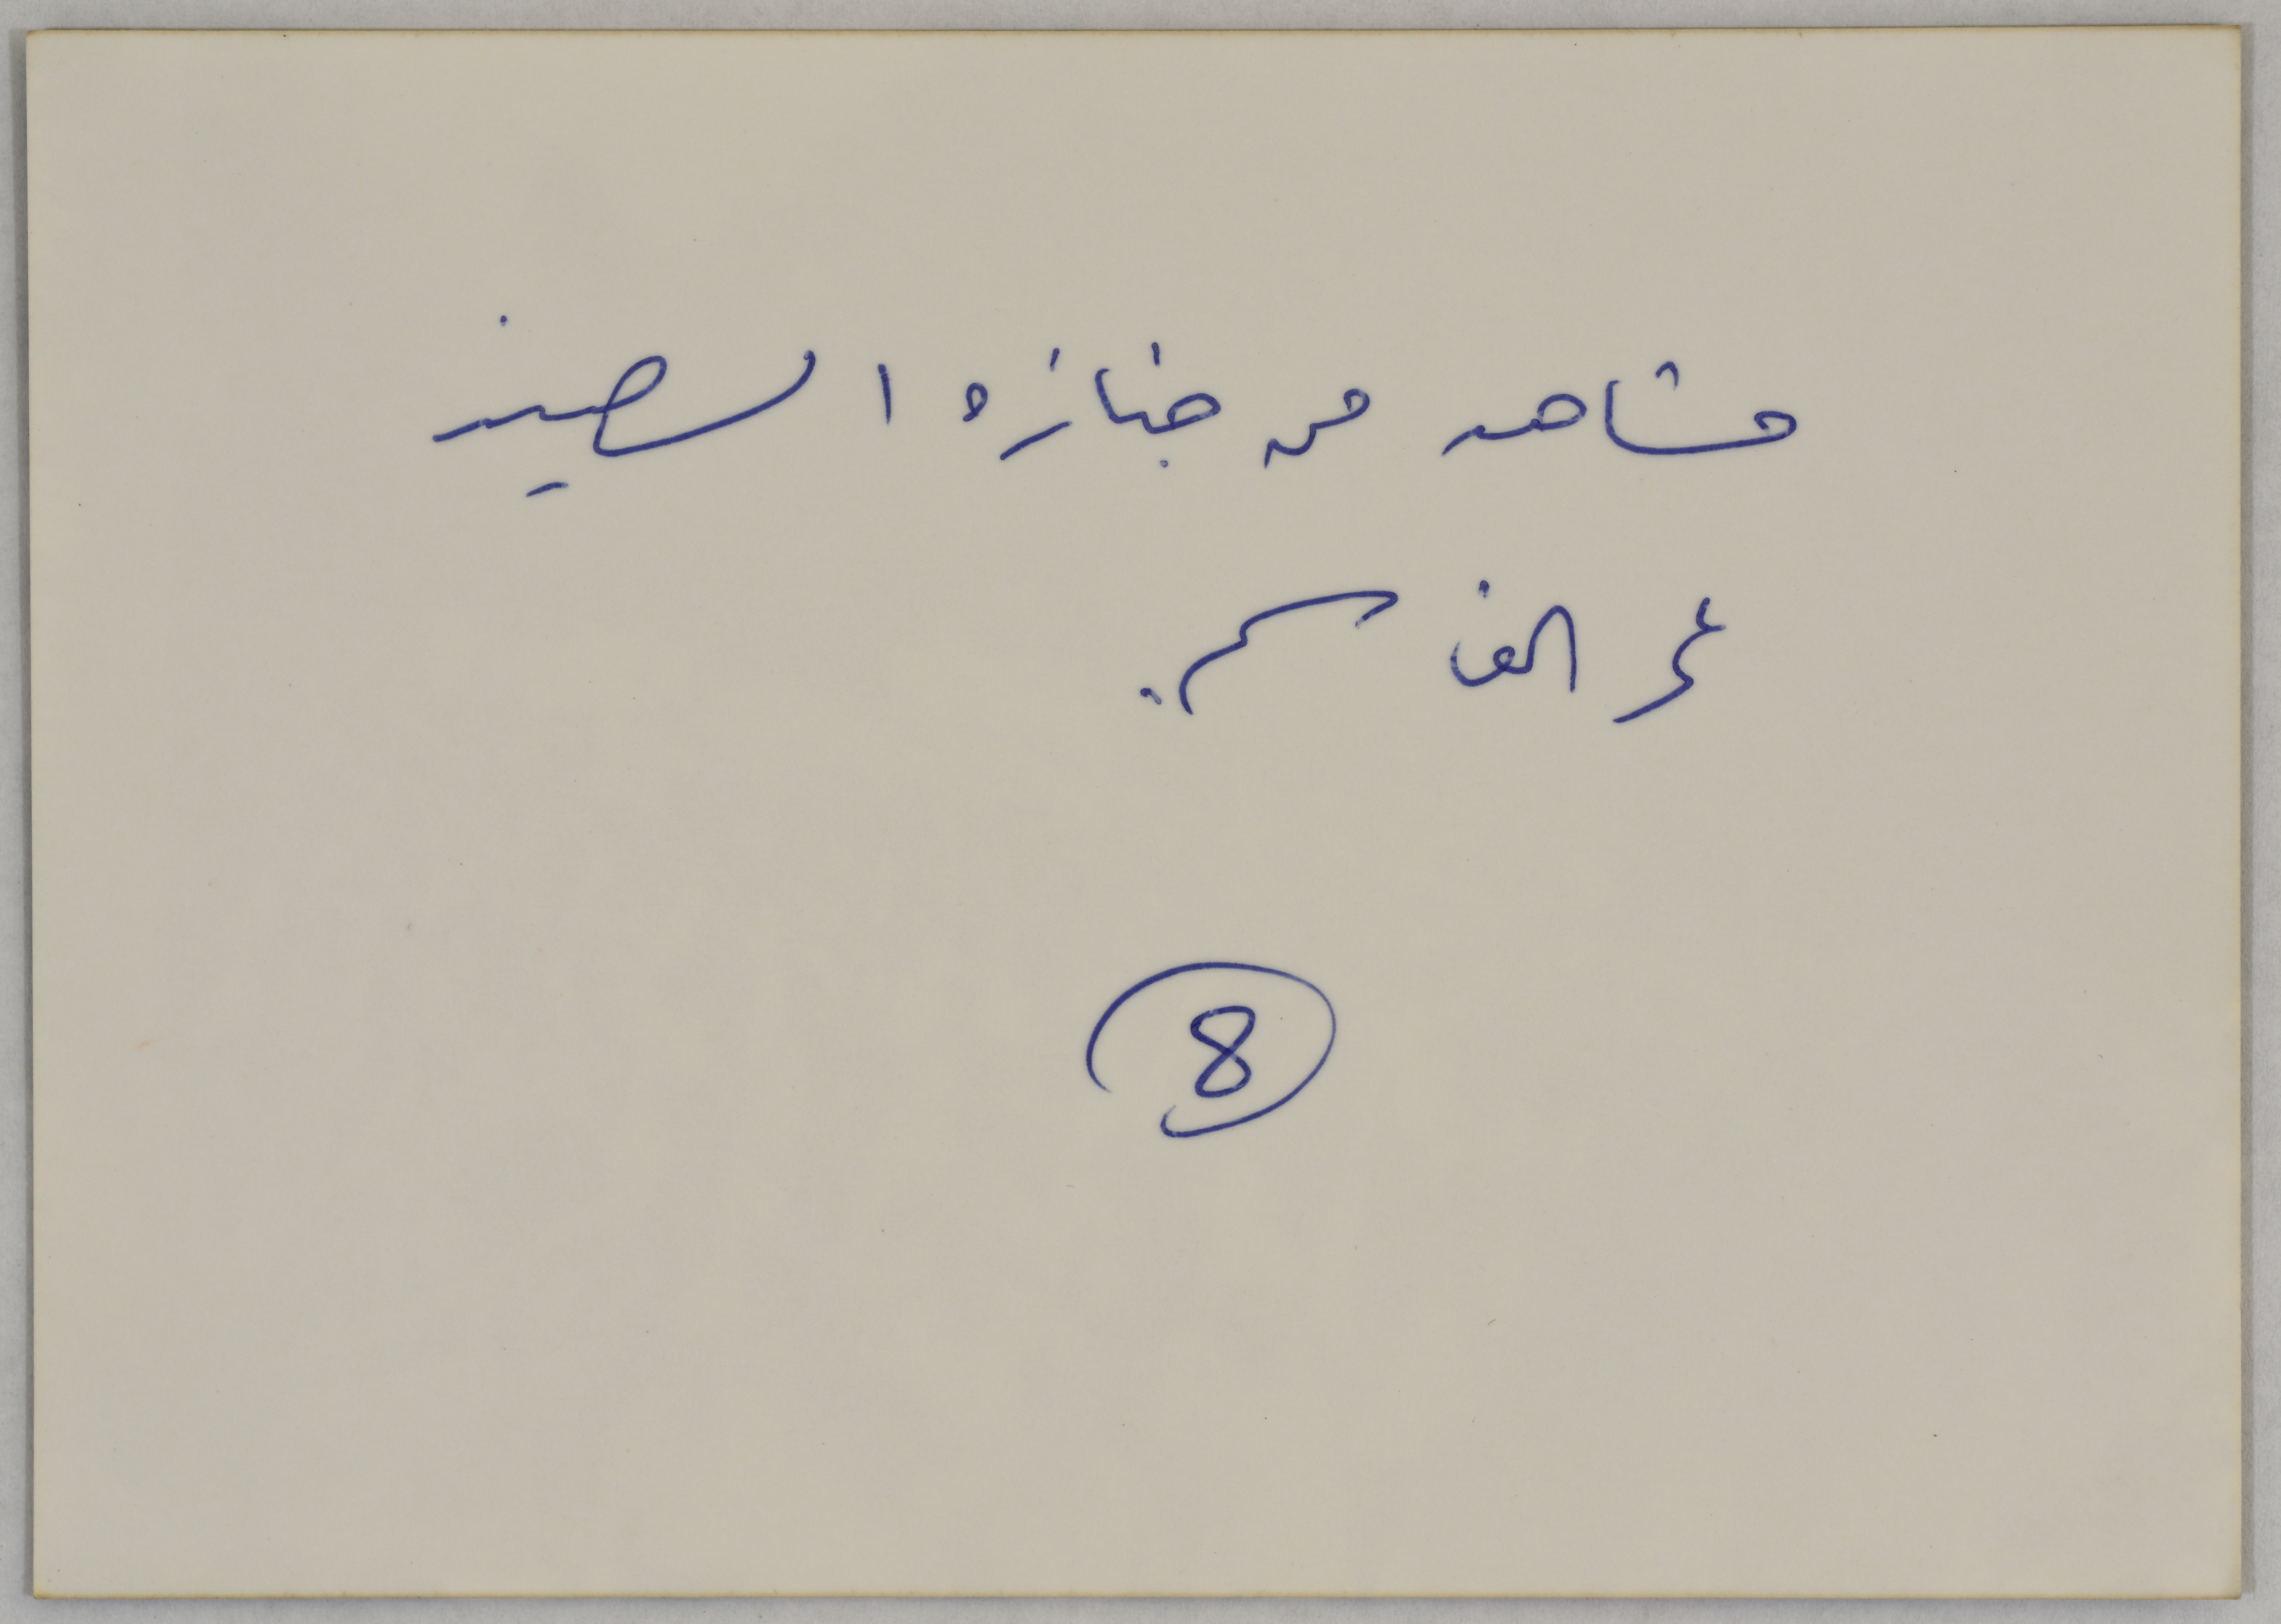 مشاهد من جنازة الشهيد
عمر القاسم.
8